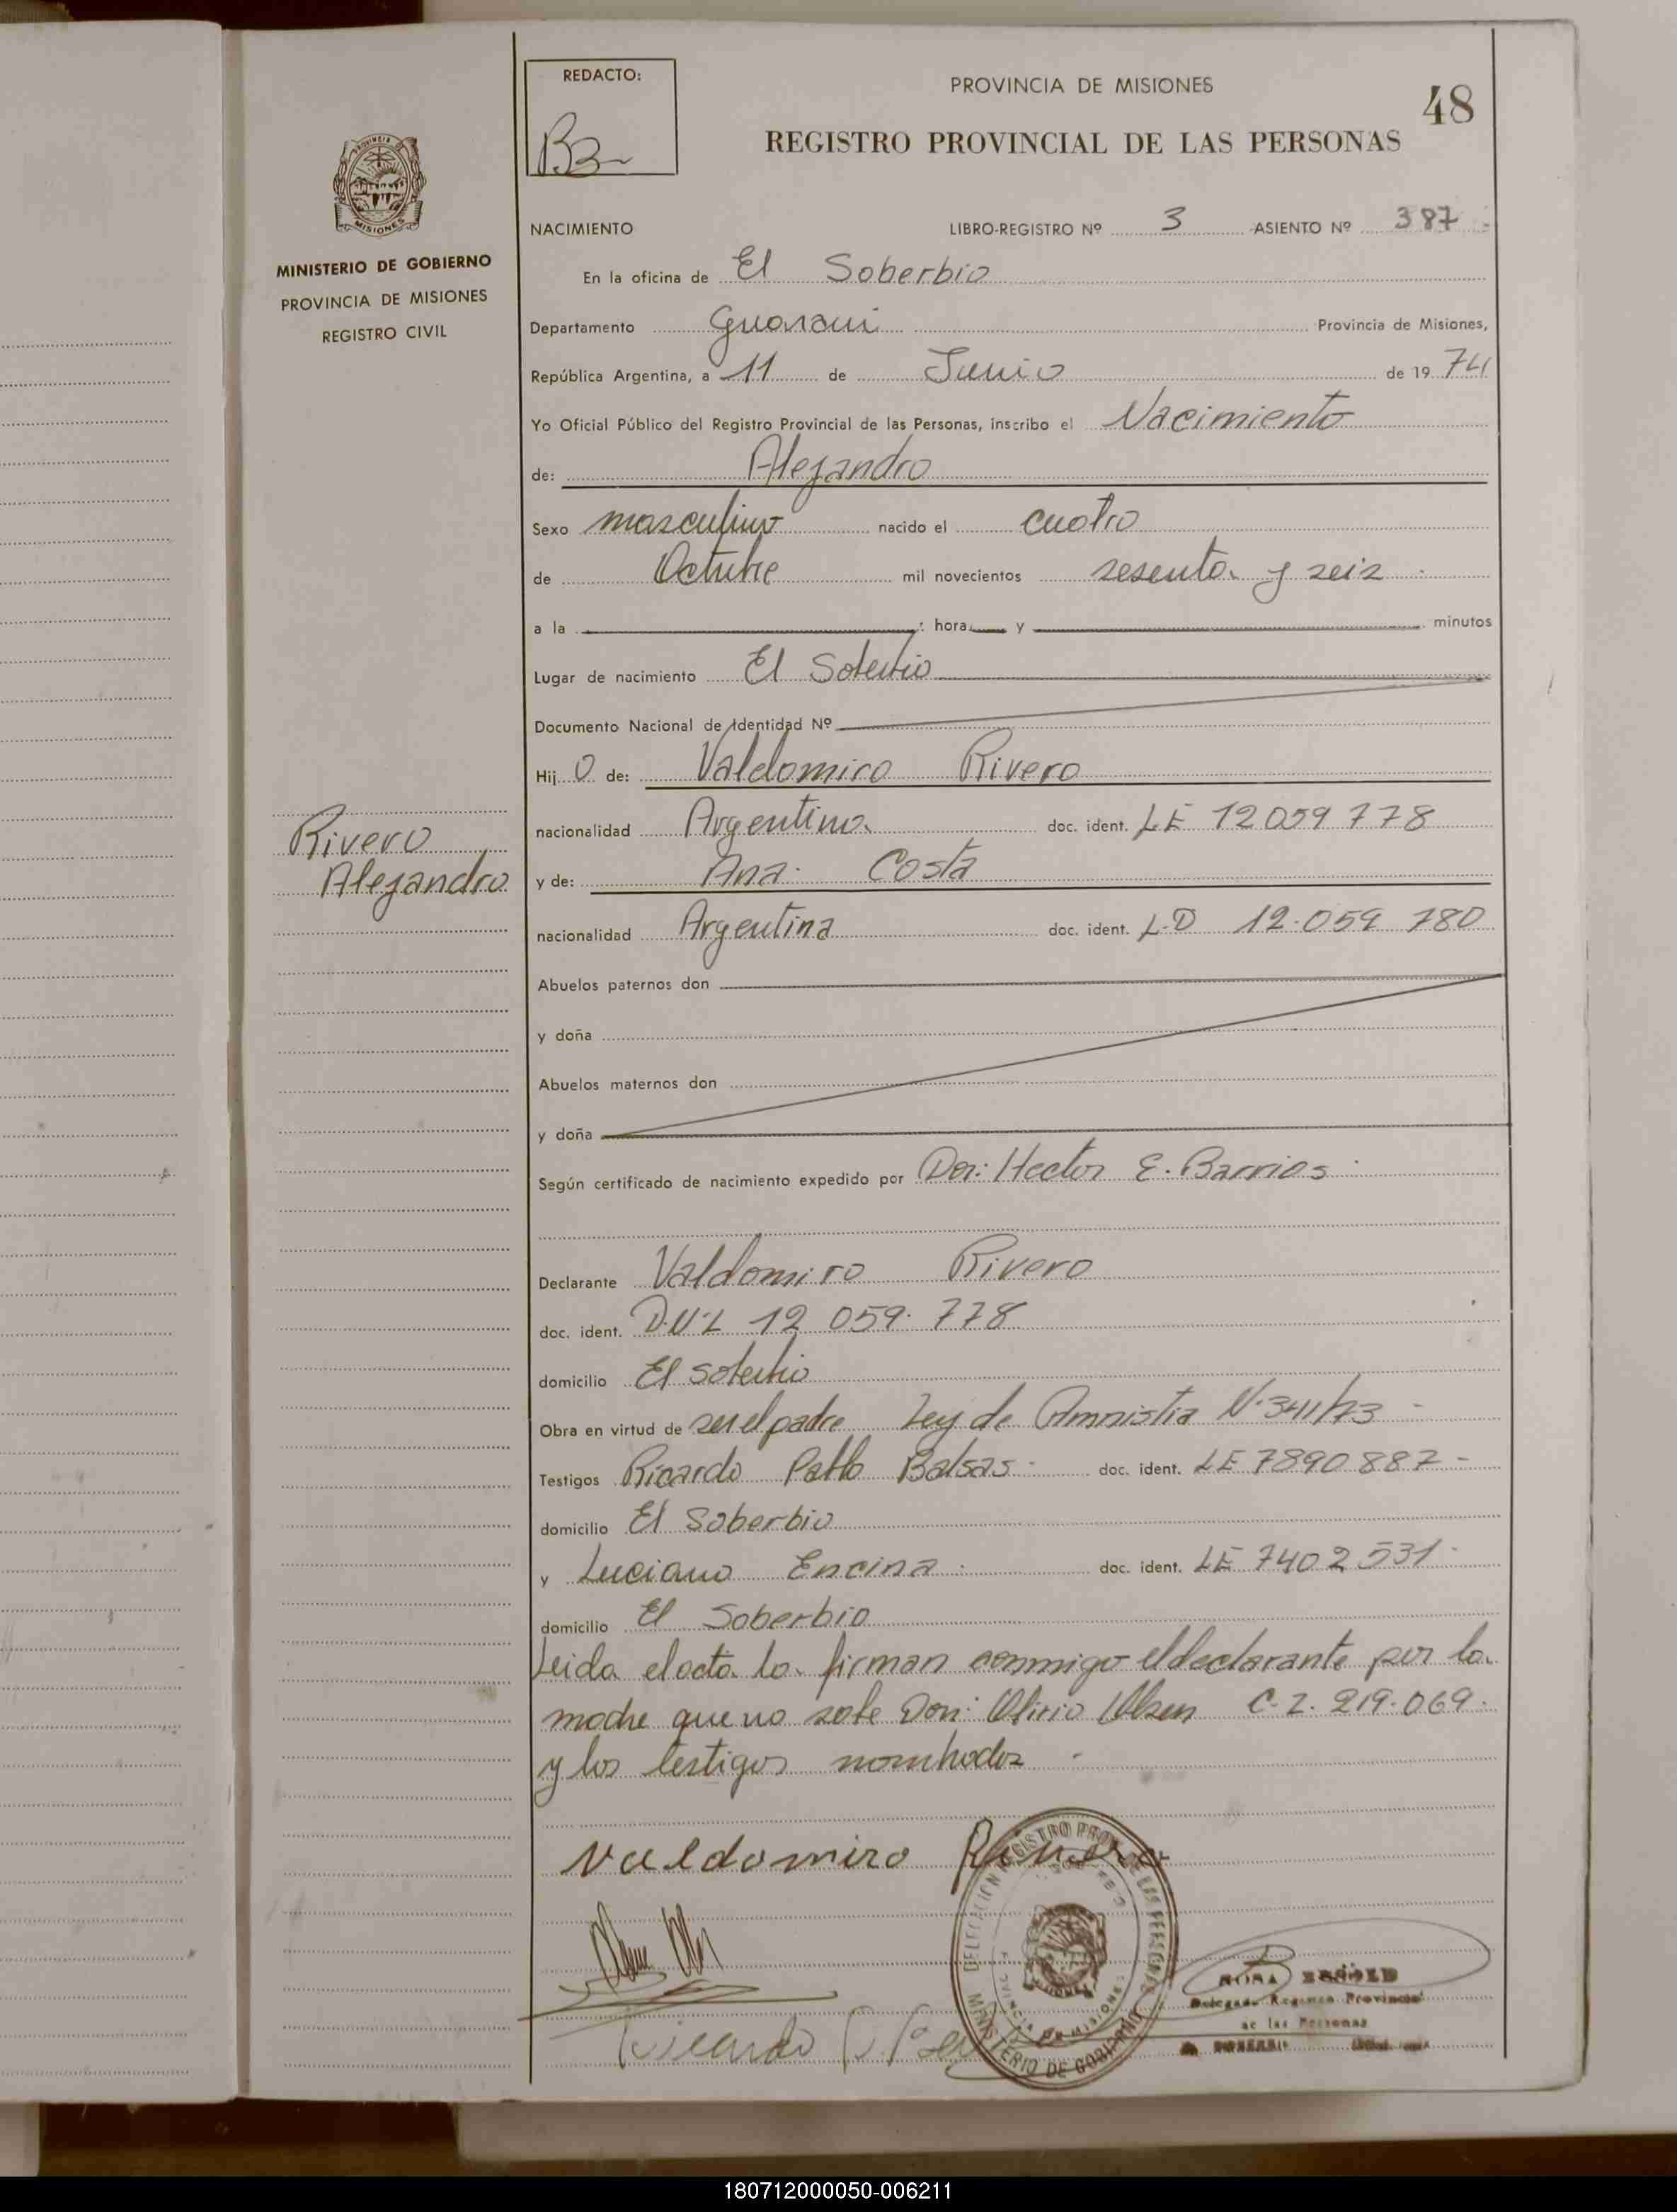 REDACTO:
PROVINCIA DE MISIONES
48
REGISTRO PROVINCIAL DE LAS PERSONAS
MISIONES
MINISTERIO DE GOBIERNO
PROVINCIA DE MISIONES
REGISTRO CIVIL
NACIMIENTO LIBRO-REGISTRO Nº 3 ASIENTO Nº 387
En la oficina de El Soberbio
Departamento Guarani Provincia de Misiones,
República Argentina, a 11 de Junio de 19 74
Yo Oficial Público del Registro Provincial de las Personas, inscribo el Nacimiento
de: Alejandro
Sexo masculino nacido el cuatro
de Octubre mil novecientos sesenta y seis
a la hora y minutos
Lugar de nacimiento El Soberbio
Documento Nacional de Identidad Nº
Hij o de: Valdomiro Rivero
nacionalidad Argentino doc. ident. LE 12059778
Rivero
Alejandro
y de: Ana Costa
nacionalidad Argentina doc. ident. L.D 12.059 780
Abuelos paternos don
y doña
Abuelos maternos don
y doña
Según certificado de nacimiento expedido por Don: Hector E. Barrios
Declarante Valdomiro Rivero
doc. ident. 12 059.778
domicilio El Soberbio
Obra en virtud de ser el padre Ley de Amnistia Nº 3411/73
Testigos Ricardo Pablo Balsas doc. ident. LE 7890887
domicilio El Soberbio
y Luciano Encina doc. ident. LE 7402531
domicilio El Soberbio
Leida el acta la firman conmigo el declarante por la
madre que no sabe Don: Olsen C.I. 219.069
y los testigos nombrados
Valdomiro Rivero
Ricardo P.
DELEGACION REGISTRO PROV. DE LAS PERSONAS
MINISTERIO DE GOBIERNO
PROVINCIA DE MISIONES
Registro Provincial
de las Personas
180712000050-006211